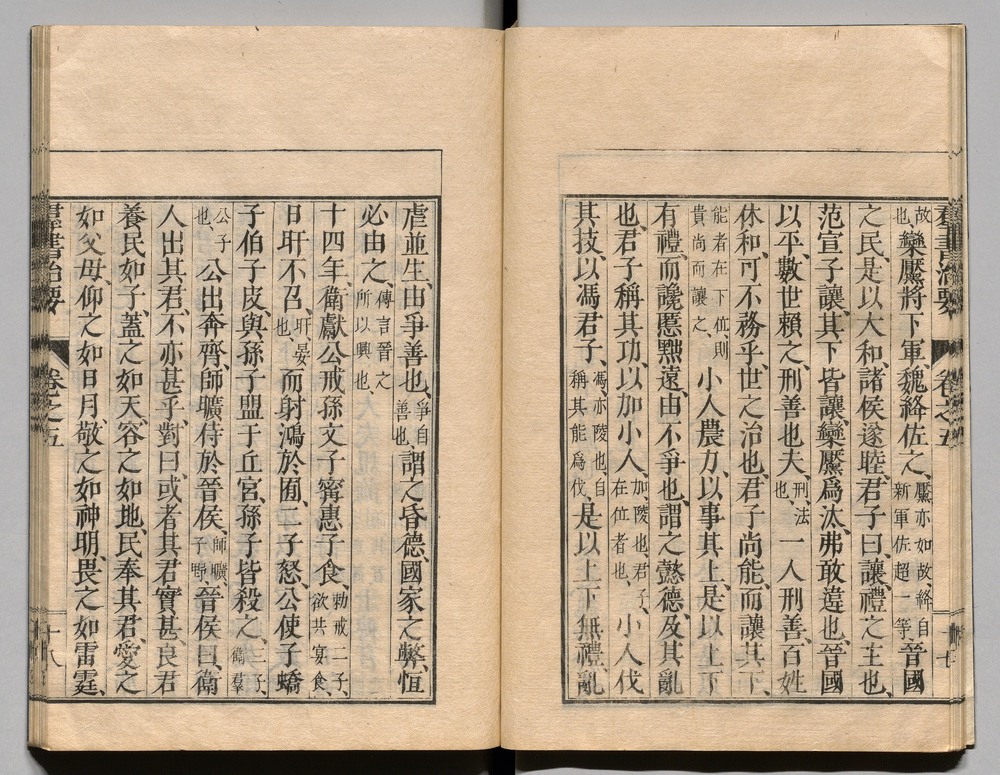 故也、欒黶將下軍、魏絳佐之、黶亦如故、絳自新軍佐超一等、晉國
之民、是以大和、諸侯遂睦、君子曰、讓、禮之主也、
范宣子讓、其下皆讓、欒黶爲汰、弗敢違也、晉國
以平、數世賴之、刑善也夫、刑、法也、一人刑善、百姓
休和、可不務乎、世之治也、君子尚能、而讓其下、
能者在下位、則貴尚而讓之、小人農力、以事其上、是以上下
有禮、而讒慝黜遠、由不爭也、謂之懿德、及其亂
也、君子稱其功、以加小人、加、陵也、君子、在位者也、小人伐
其技、以馮君子、馮、亦陵也、自稱其能爲伐、是以上下無禮、亂
羣書治要 卷之五 十七
虐並生、由爭善也、爭自善也、謂之昏德、國家之弊、恒
必由之、傳言晉之所以興也、
十四年、衛獻公戒孫文子寗惠子食、勑戒二子、欲共宴食、
日旰不召、旰、晏也、而射鴻於囿、二子怒、公使子蟜
子伯子皮、與孫子盟于丘宮、孫子皆殺之、三子、衛羣公子也、
公出奔齊、師曠侍於晉侯、師曠、子野、晉侯曰、衛
人出其君、不亦甚乎、對曰、或者其君實甚、良君
養民如子、蓋之如天、容之如地、民奉其君、愛之
如父母、仰之如日月、敬之如神明、畏之如雷霆、
羣書治要 卷之五 十八